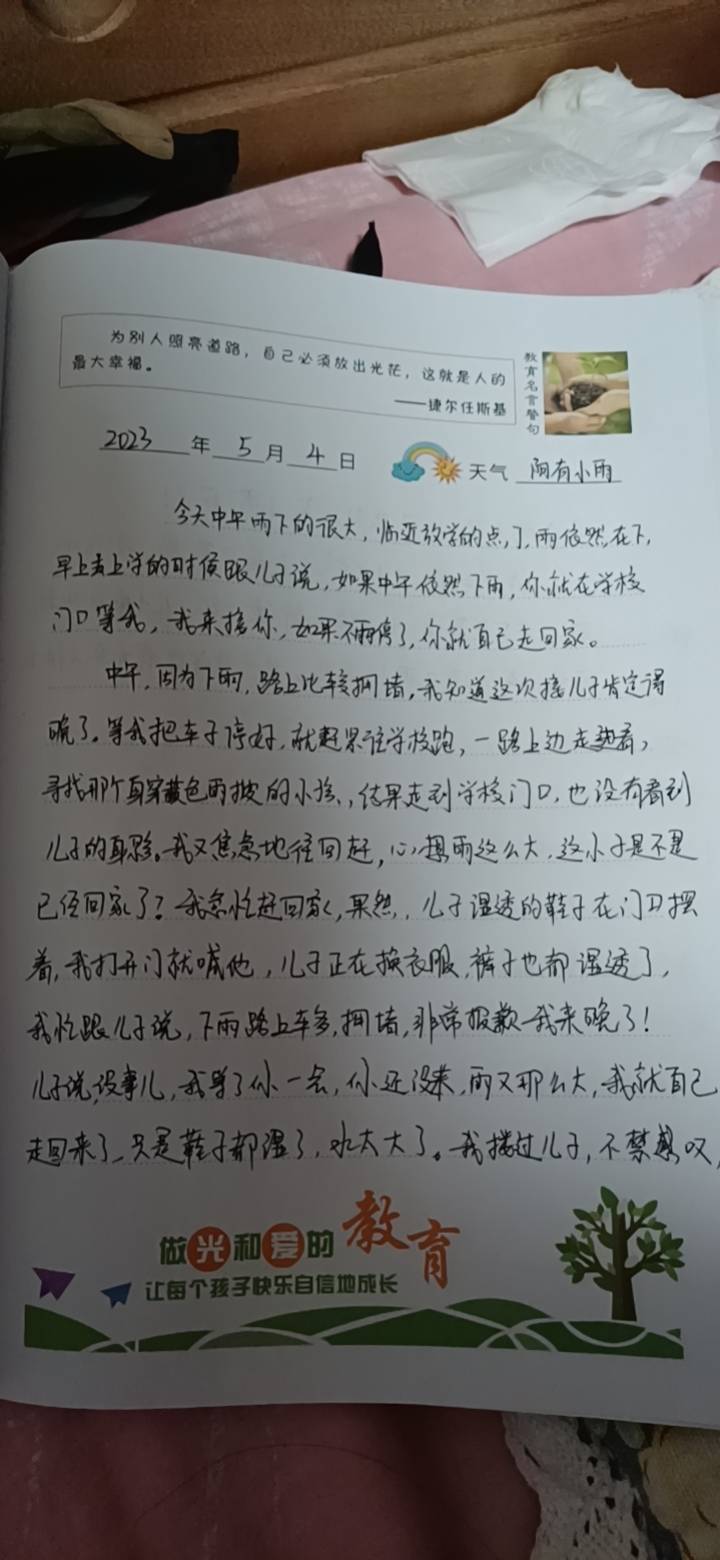 为别人照亮道路，自己必须放出光芒，这就是人的
最大幸福。
——捷尔任斯基
教育名言警句
2023年5月4日
天气 阴有小雨
今天中午雨下的很大，临近放学的点了，雨依然在下，
早上去上学的时候跟儿子说，如果中午依然下雨，你就在学校
门口等我，我来接你，如果不下雨停了，你就自己走回家。
中午，因为下雨，路上比较拥堵，我知道这次接儿子肯定得
晚了。等我把车子停好，就赶紧往学校跑，一路上边走边看，
寻找那个身穿藏色雨披的小孩，结果走到学校门口，也没有看到
儿子的身影。我又焦急地往回赶，心想雨这么大，这小子是不是
已经回家了？我急忙赶回家，果然，儿子湿透的鞋子在门口摆
着，我打开门就喊他，儿子正在换衣服，裤子也都湿透了，
我忙跟儿子说，下雨路上车多，拥堵，非常抱歉我来晚了！
儿子说，没事儿，我等了你一会，你还没来，雨又那么大，我就自己
走回来了，只是鞋子都湿了，水太大了。我搂过儿子，不禁感叹，
做光和爱的教育
让每个孩子快乐自信地成长